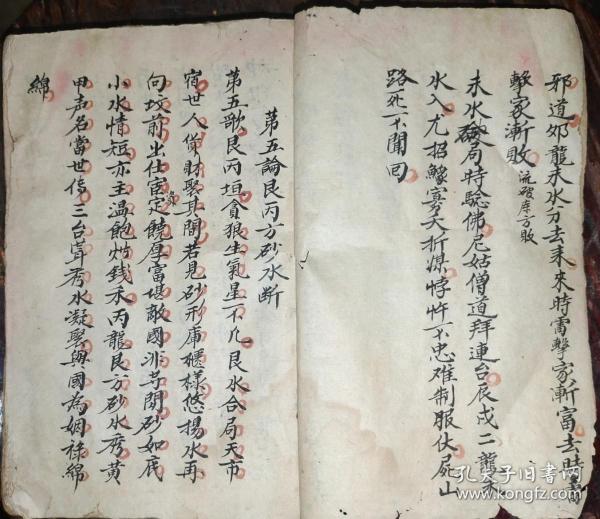 邪道邪龍未水方去未來時雷擊家漸富去時雷
擊家漸敗流破库方敗
未水發局時驗佛尼姑僧道拜連台辰戌二龍未
水入尤招鰥寡夭折媒悖忤不忠难制服伏屍山
路死不闻回
第五論艮丙方砂水断
第五歌艮丙垣貪狼生氣星不凡艮水合局天市
宿世人貨財聚其間若見砂形庫櫃樣悠揚水再
向坟前出仕富定饒厚富堪敵國非等閒砂如底
小水情短亦主温飽炒錢禾丙龍艮方砂水秀黄
甲声名當世傳三台聳秀水凝聚與國為姻祿綿
綿
孔夫子旧书网
www.kongfz.com